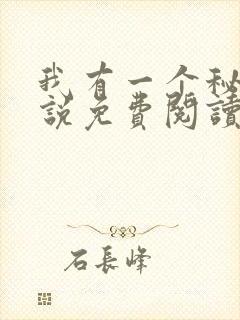 我有一个秘
說免費閱讀
石長峰